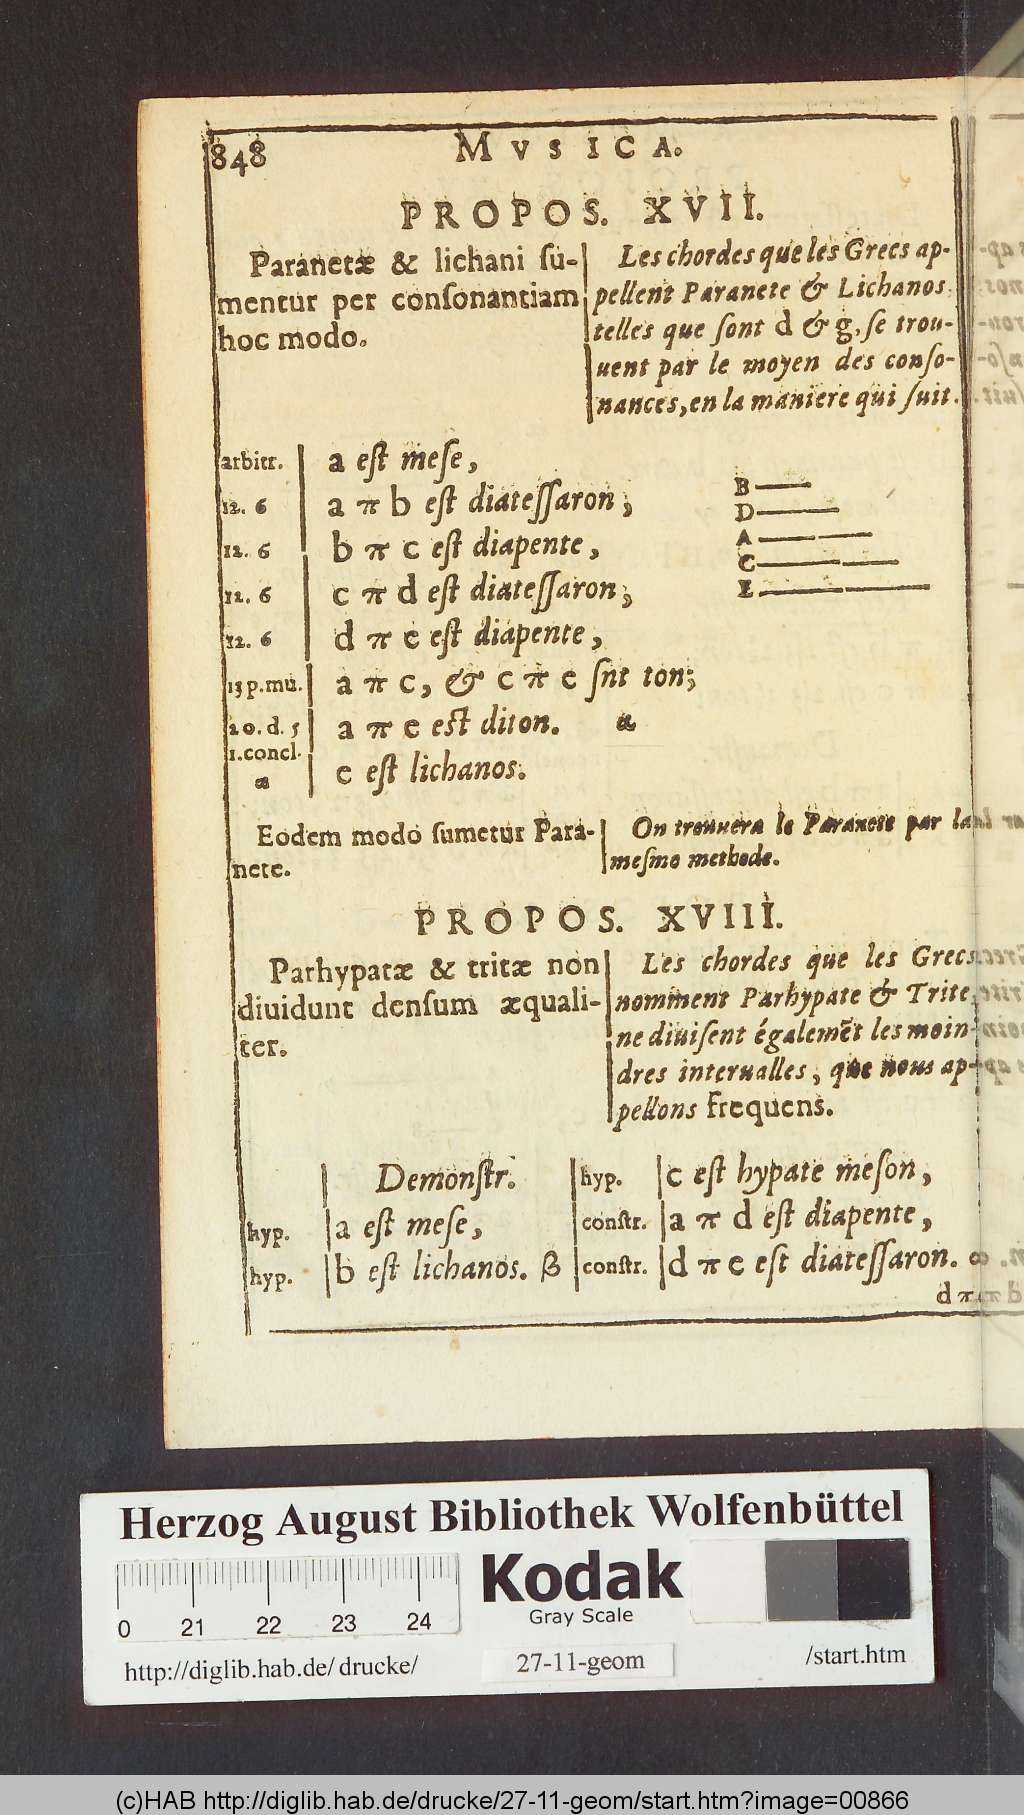 848 MVSICA.
PROPOS. XVII.
Paranetæ & lichani ſu-
mentur per conſonantiam
hoc modo.
Les chordes que les Grecs ap-
pellent Paranete & Lichanos
telles que ſont d & g, ſe trou-
uent par le moyen des conſo-
nances, en la maniere qui ſuit.
arbitr. a eſt meſe,
12. 6 a π b eſt diateſſaron,
12. 6 b π c eſt diapente,
12. 6 c π d eſt diateſſaron,
12. 6 d π e eſt diapente,
13 p. mu. a π c, & c π e ſnt ton;
20. d. 5 a π e eſt diton. α
1. concl. α e eſt lichanos.
B
D
A
C
E
Eodem modo ſumetur Para-
nete.
On trouuera le Paranete par la
meſme methode.
PROPOS. XVIII.
Parhypatæ & tritæ non
diuidunt denſum æquali-
ter.
Les chordes que les Grecs
nomment Parhypate & Trite,
ne diuiſent égalemẽt les moin-
dres interualles, que nous ap-
pellons frequens.
Demonſtr.
hyp. a eſt meſe,
hyp. b eſt lichanos. β
hyp. c eſt hypate meſon,
conſtr. a π d eſt diapente,
conſtr. d π e eſt diateſſaron.
d π
Herzog August Bibliothek Wolfenbüttel
0 21 22 23 24
Kodak
Gray Scale
http://diglib.hab.de/drucke/ 27-11-geom /start.htm
(c)HAB http://diglib.hab.de/drucke/27-11-geom/start.htm?image=00866